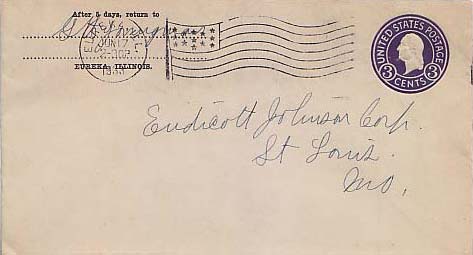 After 5 days, return to
JUN 17
1933
EUREKA, ILLINOIS.
UNITED STATES POSTAGE
3 CENTS 3
Endicott Johnson Corp.
St Louis.
Mo.